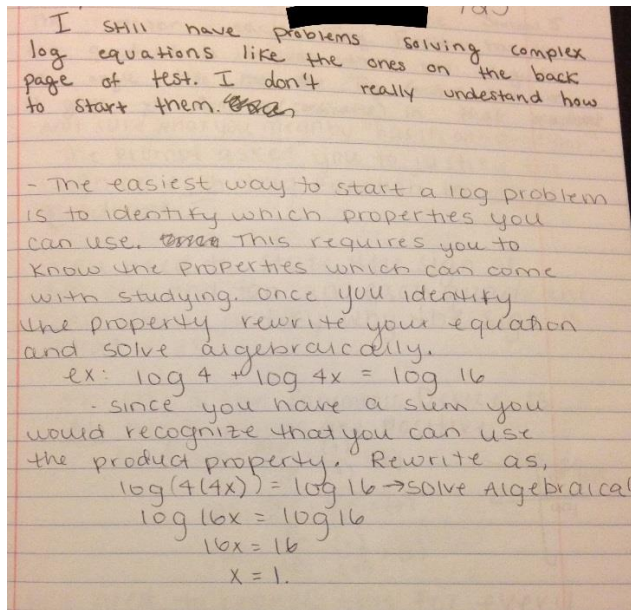 I still have problems solving complex
log equations like the ones on the back
page of test. I don't really undestand how
to start them.
- The easiest way to start a log problem
is to identify which properties you
can use. This requires you to
know the properties which can come
with studying. once you identify
the property rewrite your equation
and solve algebraically.
ex: log 4 + log 4x = log 16
- since you have a sum you
would recognize that you can use
the product property. Rewrite as,
log(4(4x)) = log 16 → solve Algebraical
log 16x = log 16
16x = 16
x = 1.